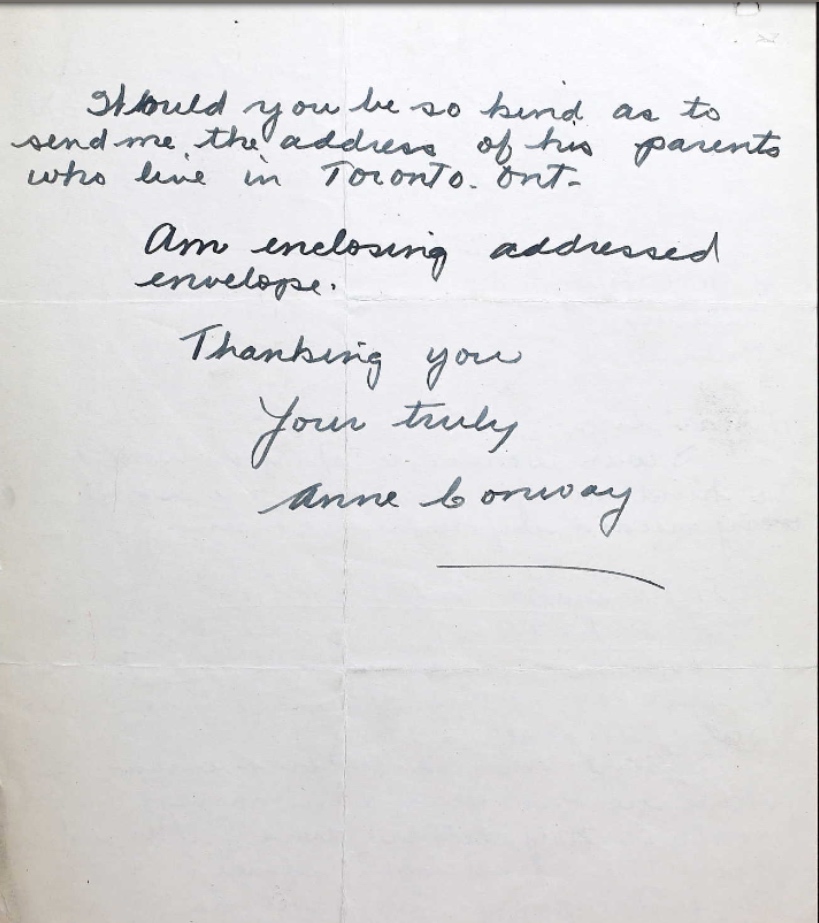 Would you be so kind as to
send me the address of his parents
who live in Toronto. Ont-
Am enclosing addressed
envelope.
Thanking you
Your truly
Anne Conway